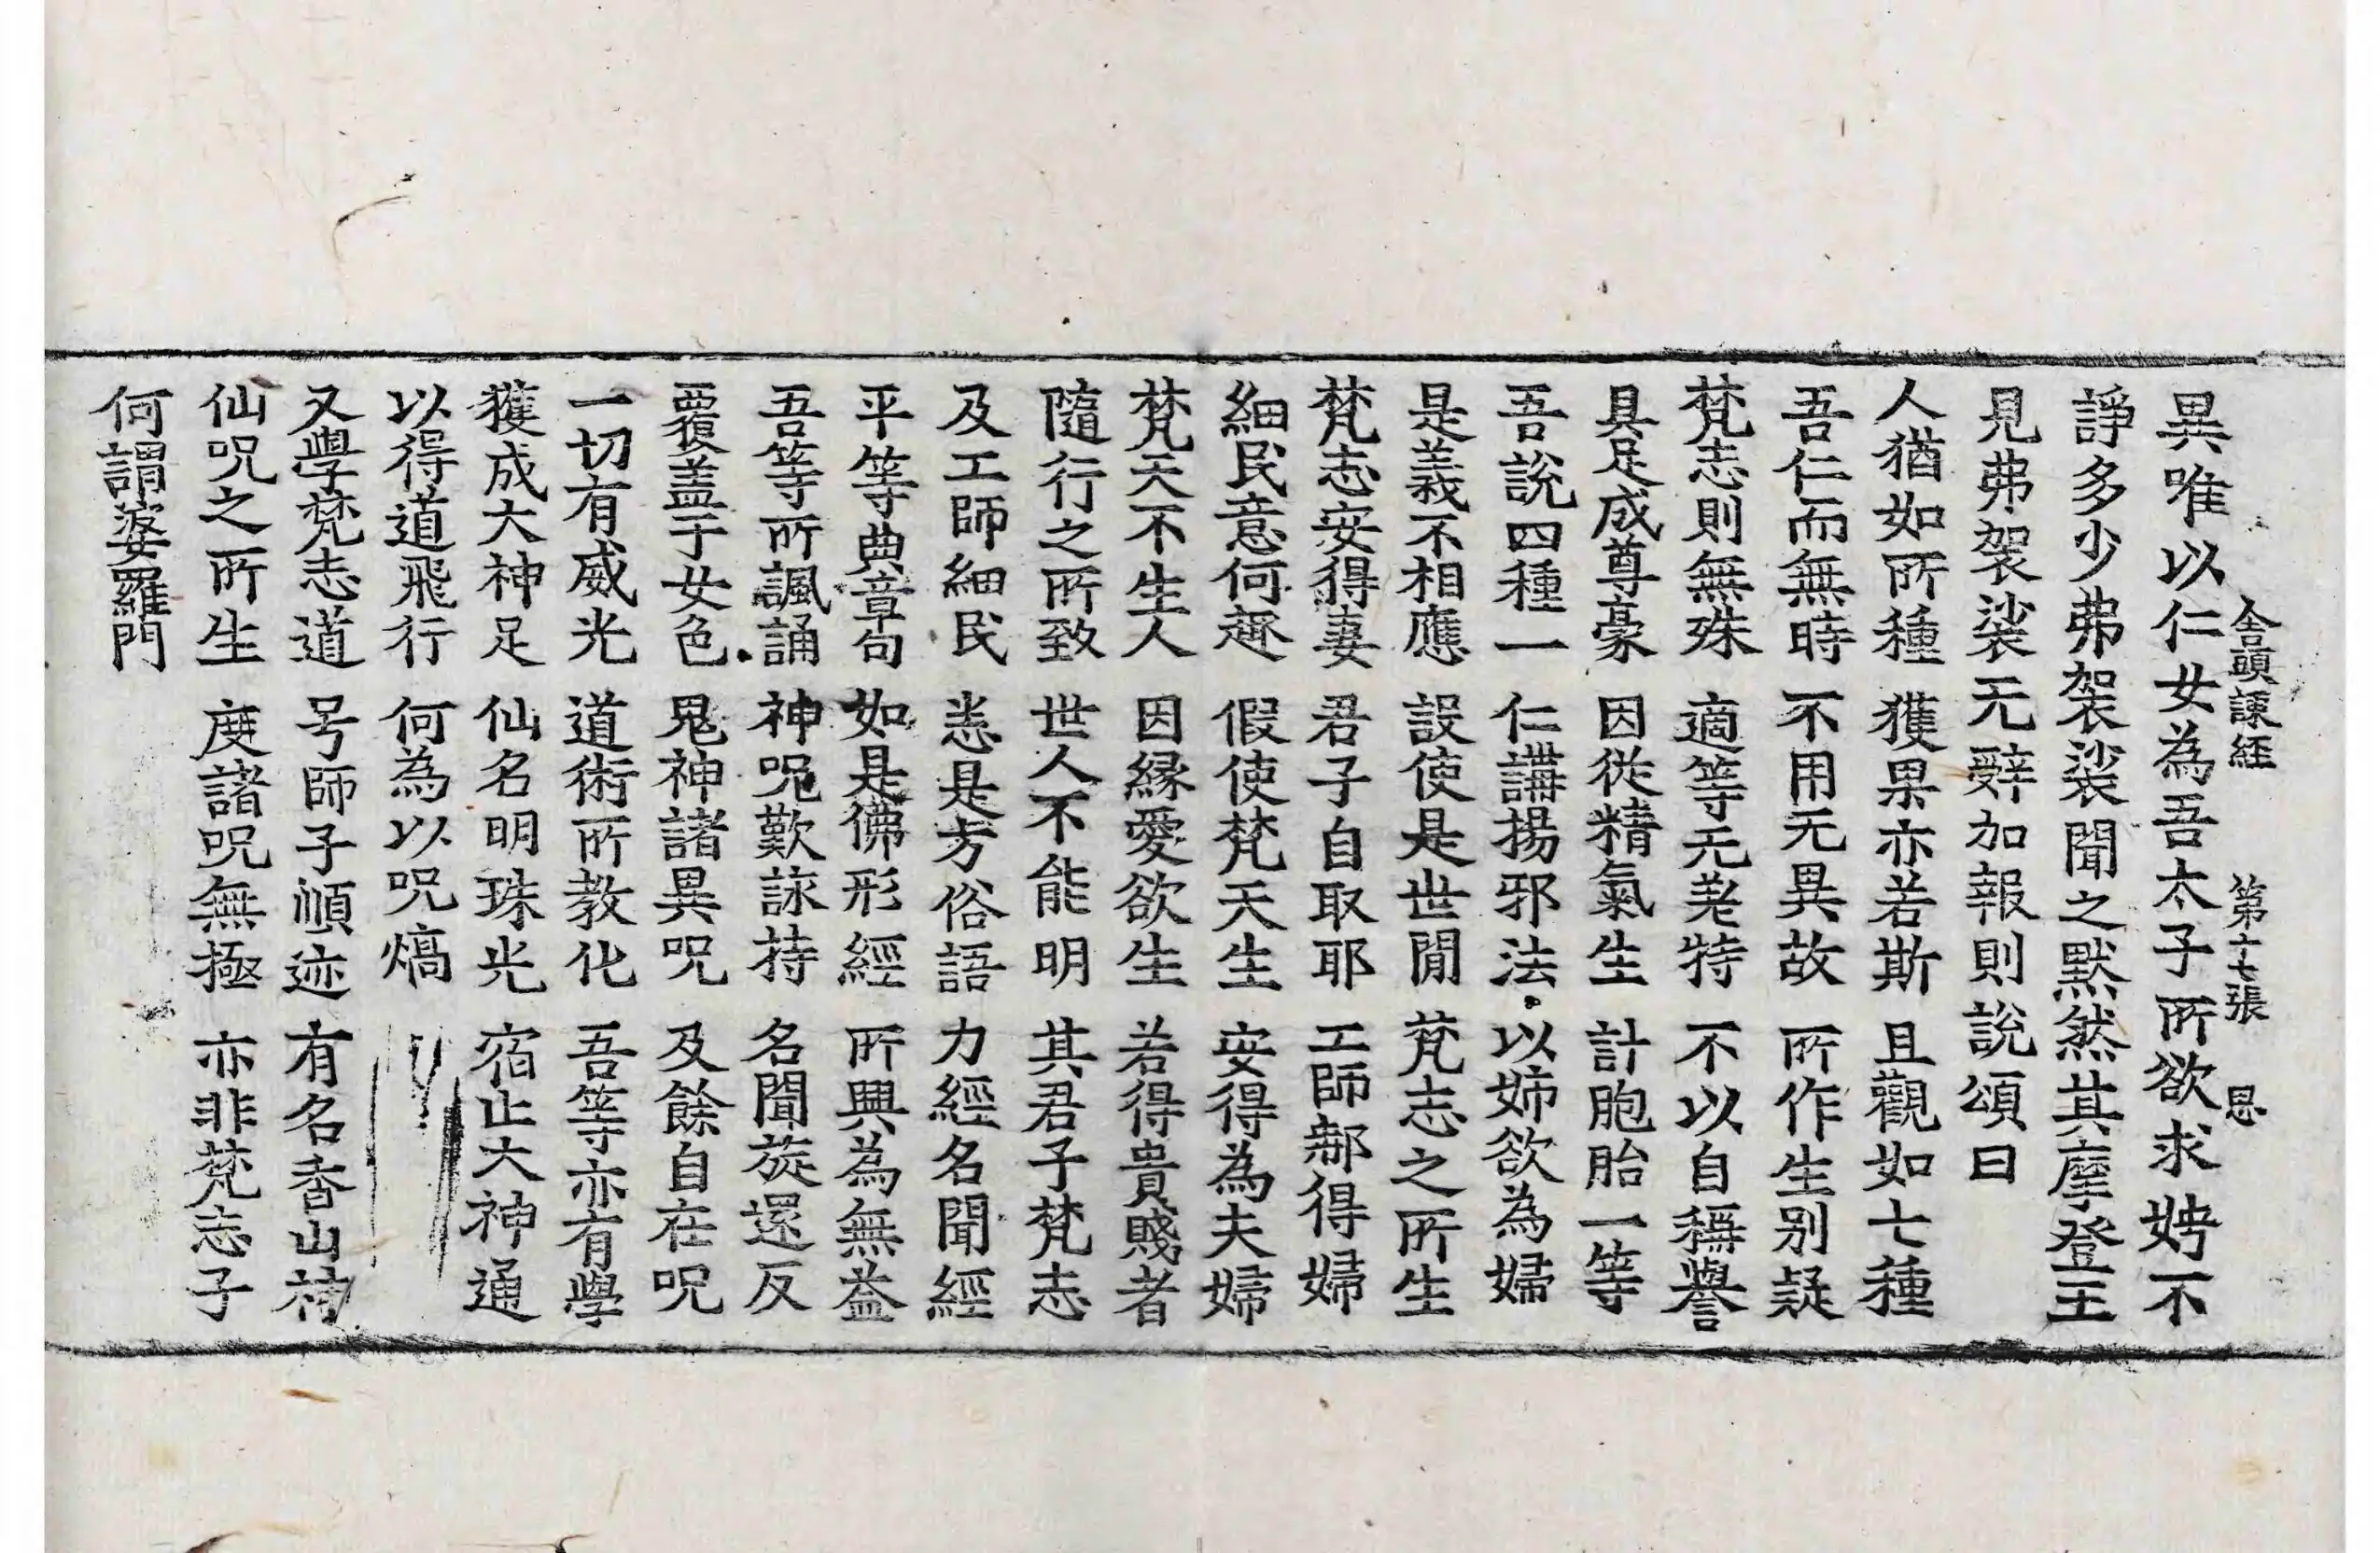 舍頭諫經 第十七張 思
異唯以仁女為吾太子所欲求娉不
諍多少弗袈裟聞之默然其摩登王
見弗袈裟无辭加報則說頌曰
人猶如所種 獲果亦若斯 且觀如七種
吾仁而無時 不用无異故 所作生别疑
梵志則無殊 適等无差特 不以自稱譽
具足成尊豪 因從精氣生 計胞胎一等
吾說四種一 仁講揚邪法 以姉欲為婦
是義不相應 設使是世閒 梵志之所生
梵志安得妻 君子自取耶 工師都得婦
細民意何趣 假使梵天生 安得為夫婦
梵天不生人 因縁愛欲生 若得貴賤者
隨行之所致 世人不能明 其君子梵志
及工師細民 悉是方俗語 力經名聞經
平等典章句 如是佛形經 所興為無益
吾等所諷誦 神呪歎詠持 名聞旋還反
覆蓋于女色 鬼神諸異呪 及餘自在呪
一切有威光 道術所教化 吾等亦有學
獲成大神足 仙名明珠光 宿止大神通
以得道飛行 何為以呪熇
又學梵志道 号師子順迹 有名香山神
仙呪之所生 度諸呪無極 亦非梵志子
何謂婆羅門